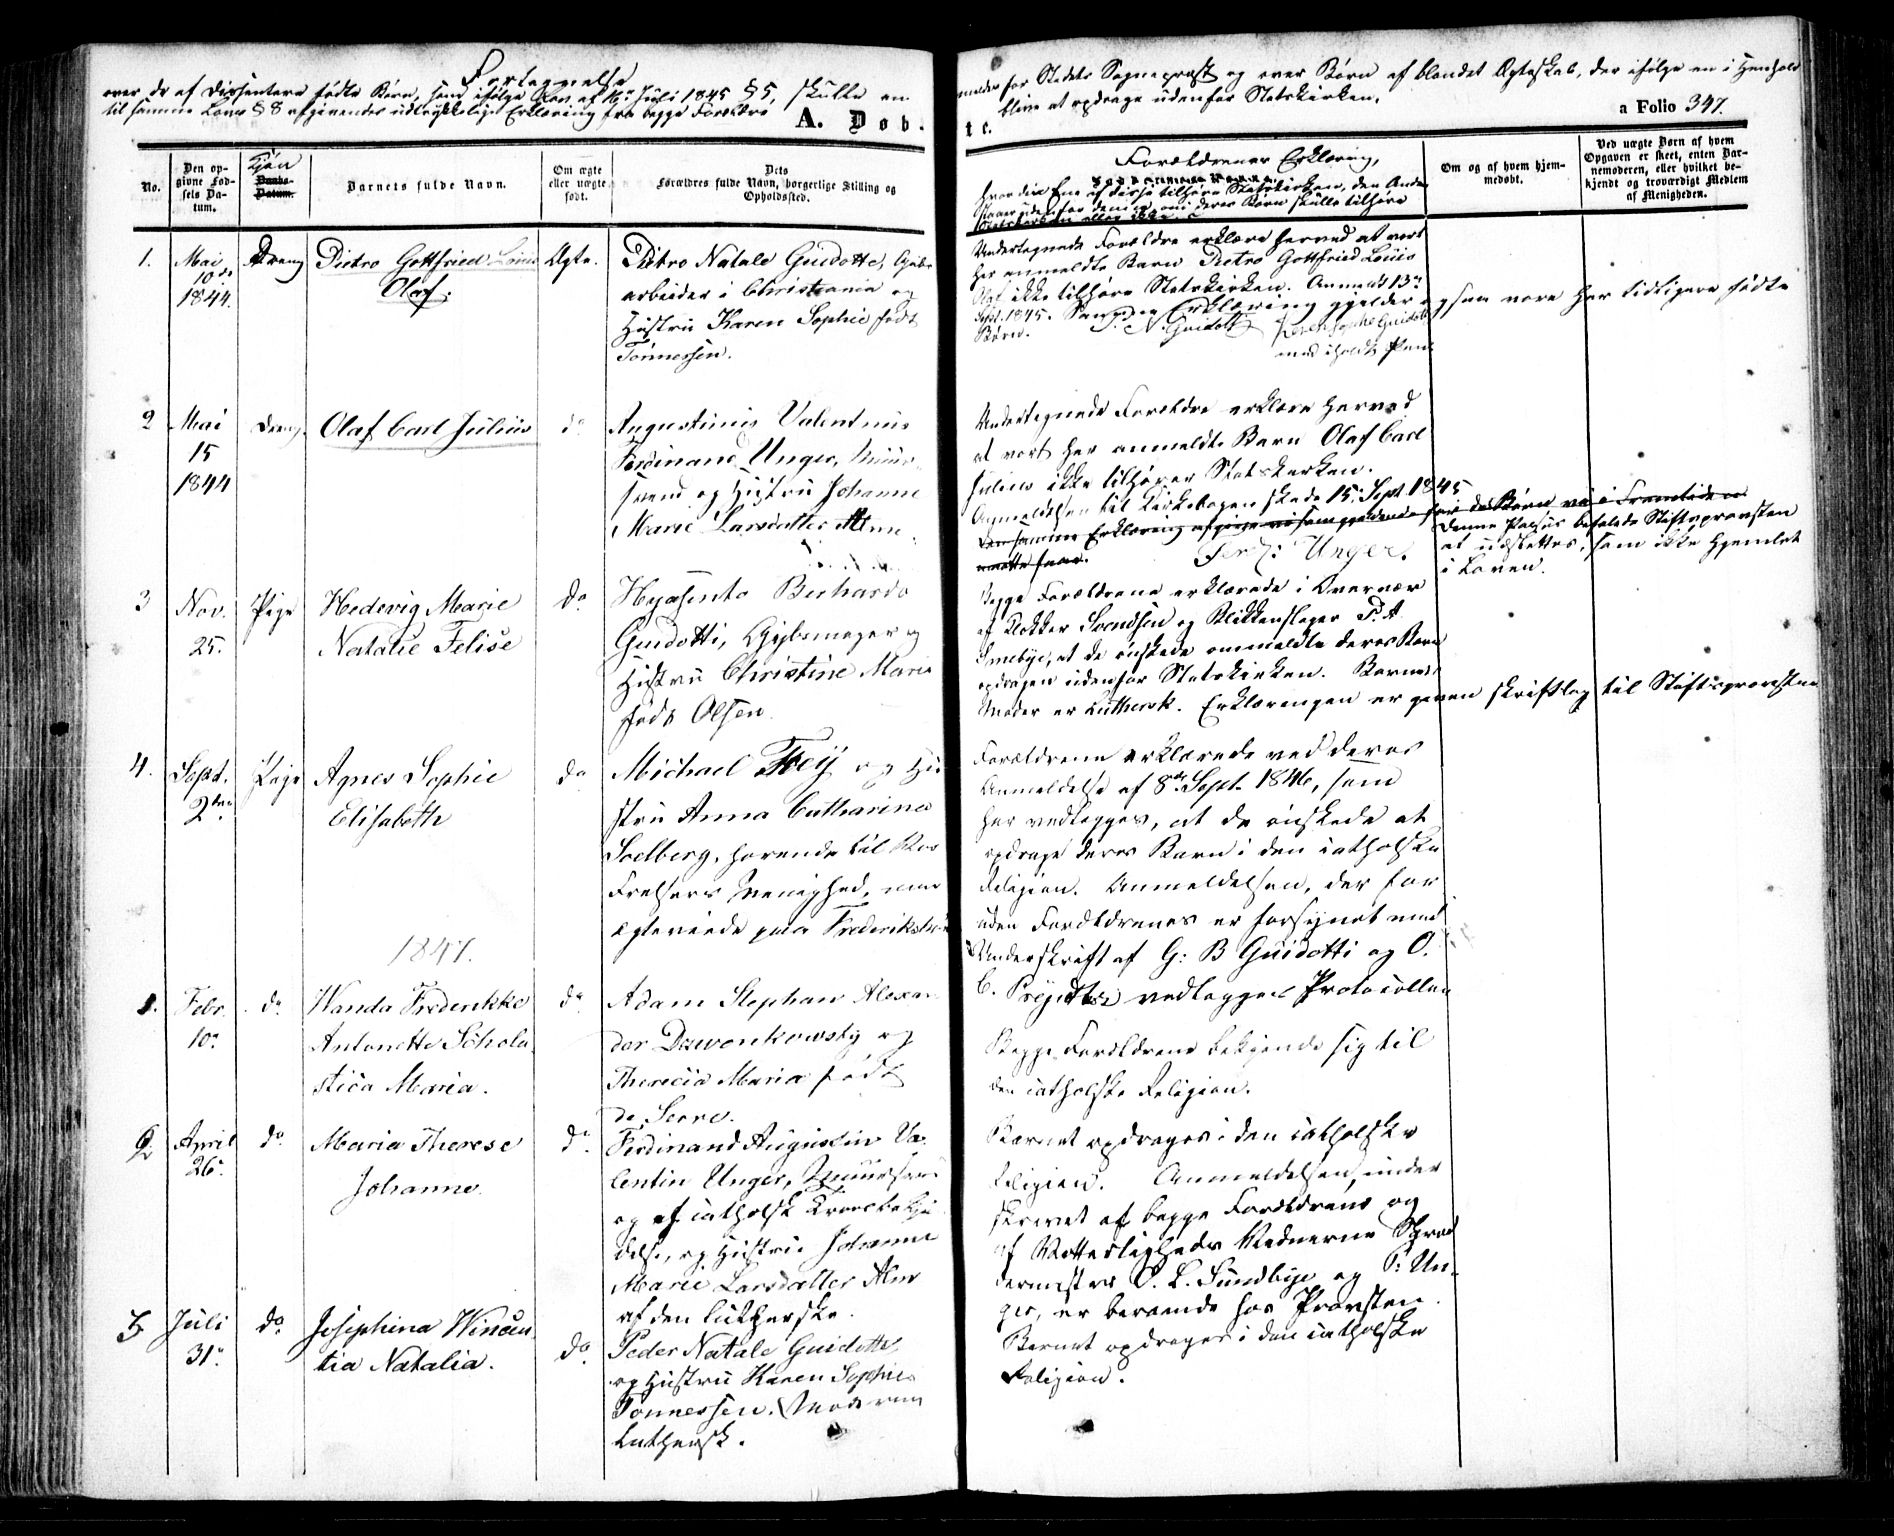 Fortegnelse
over de af Dissentere fødte Børn, som ifølge Lov af 16de Juli 1845 § 5, skulle an
til samme Lovs § 8 afgivende udtrykkelige Erklæring fra begge Forældre
A. Døb.
meldes for Stedets Sognepræst og over Børn af blandet Ægteskab, der ifølge en i Henhold
blive at opdrage udenfor Statskirken.
te.
a Folio 347.
No.
Den op-
givne Fød-
sels Da-
tum.
Kjøn
Daabs-
Datum.
Barnets fulde Navn.
Om ægte
eller uægte
født.
Dets
Forældres fulde Navn, borgerlige Stilling og
Opholdssted.
Forældrenes Erklæring,
Faddernes Navne.
hvor den Ene af disse tilhører Statskirken, den Anden
staar udenfor denne, om deres Børn skulle tilhøre
Statskirken eller ikke
Om og af hvem hjem-
medøbt.
Ved uægte Børn af hvem
Opgaven er skeet, enten Bar-
nemoderen, eller hvilket be-
kjendt og troværdigt Medlem
af Menigheden.
1.
Mai
10de
1844.
Dreng
Pietro Gottfried Louis
Olaf.
Ægte.
Pietro Natale Guidotti, Gibs
arbeider i Christiania og
Hustru Karen Sophie født
Tønnessen.
Undertegnede Forældre erklære herved at vort
her anmeldte Barn Pietro Gottfried Louis
Olaf ikke tilhører Statskirken. Anmeldt 13de
Sept. 1845. Samme Erklæring gjelder ogsaa vore her tidligere fødte
Børn.
N. Guidotti
Karen Sophie Guidotti
med iholdt Pen
2
Mai
15
1844
Dreng.
Olaf Carl Julius
do
Augustinus Valentinus
Ferdinand Unger, Muur-
svend og Hustru Johanne
Marie Larsdatter Alme
Undertegnede Forældre erklære herved
at vort her anmeldte Barn Olaf Carl
Julius ikke tilhører Statskirken.
Anmeldelsen til Kirkebogen skede 15. Sept 1845
Den samme Erklæring afgive vi som gjeldende for de Børn vi i Fremtiden
maatte faae.
Ferd: Unger.
Denne Passus befalede Stiftsprovsten
at udslettes, som ikke hjemlet
i Loven.
3
Nov.
25.
Pige
Hedevig Marie
Natalie Felise
do
Hyasinto Berhardo
Guidotti, Gibsmager og
Hustru Christine Marie
født Olsen.
Begge Forældrene erklærede i Overvær
af Klokker Svendsen og Blikkenslager P. A.
Smebye, at de ønskede anmeldte deres Barn
opdragen udenfor Statskirken. Barnets
Moder er Luthersk. Erklæringen er given skriftlig til Stiftsprovsten
4.
Sept.
2den
Pige
Agnes Sophie
Elisabeth
do
Michael Frey og Hu
stru Anna Catharina
Soelberg, hørende til Vor
Frelsers Menighed, men
ægteviede paa Frederikstad
Forældrene erklærede ved deres
Anmeldelse af 8de Sept. 1846, som
her vedlægges, at de ønskede at
opdrage deres Barn i den catholske
Religion. Anmeldelsen, der for
uden Forældrenes er forsynet med
Underskrift af G: B Guidotti og O.
C. vedlægges Protocollen
1847.
1.
Febr.
10.
do.
Wanda Frederikke
Antonette Schola
stica Maria.
do
Adam Stephan Alexan
der Dzwonkowsky og
Therecia Maria født
de Seone.
Begge Forældrene bekjende sig til
den catholske Religion.
2.
April
26.
do
Maria Therese
Johanne
do.
Ferdinand Augustin Va
lentin Unger, Muursvend
og af catholsk Troesbekjen
delse, og Hustrue Johanne
Marie Larsdatter Alm
af den lutherske.
Barnet opdrages i den catholske
Religion. Anmeldelsen, under
skrevet af begge Forældrene og
af Vitterligheds Vidnerne Skræd
dermester O. L. Sundbye og P: Un-
ger, er beroende hos Provsten.
3
Juli
31.
do.
Josephina Wincen
tia Natalia.
do.
Peder Natale Guidotti
og Hustru Karen Sophie
Tonnessen. Moderen
Luthersk.
Barnet opdrages i den catholske
Religion.